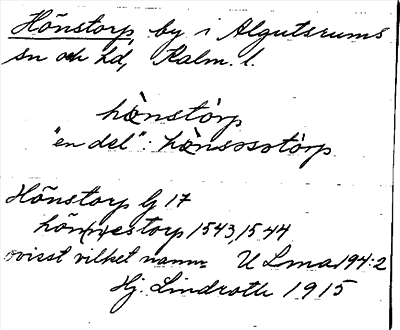 Hönstorp by i Algutsrums
sn och hd, Kalm. l.
hø̀nstòrp
"en del": hø̀nsosstòrp
Hönstorp G 17
hön(n)estorp 1543, 1544
ovisst vilket namn= U Lma 194:2
Hj. Lindroth 1915